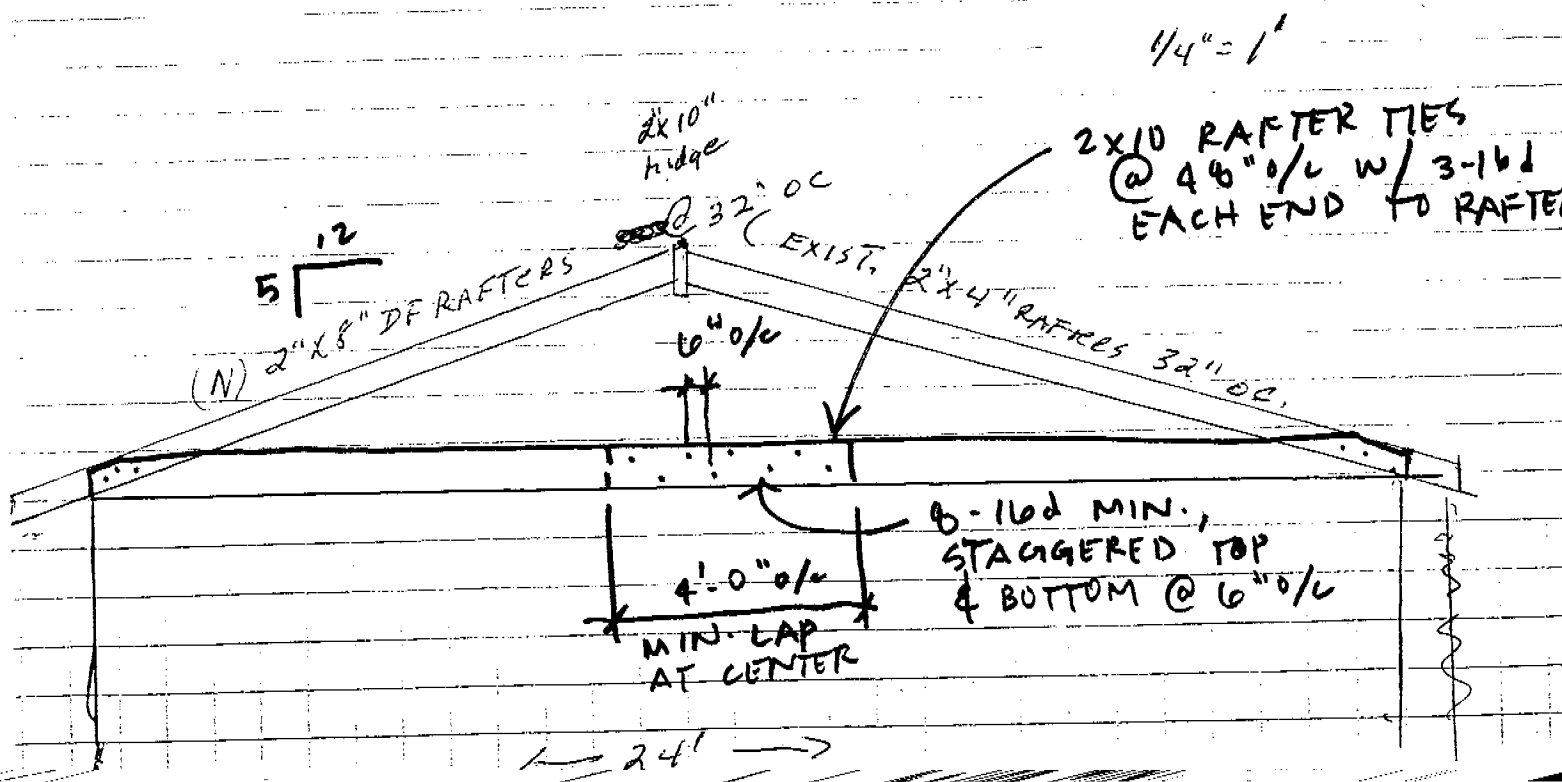 1/4" = 1'
2"x10"
ridge
@ 32" OC
2x10 RAFTER TIES
@ 48" o/c W/ 3-16d
EACH END TO RAFTER
12
5
(N) 2"x8" DF RAFTERS
( EXIST. 2"x4" RAFRES 32" OC.
6" o/c
8-16d MIN.,
STAGGERED TOP
& BOTTOM @ 6" o/c
4'-0" o/c
MIN. LAP
AT CENTER
24'